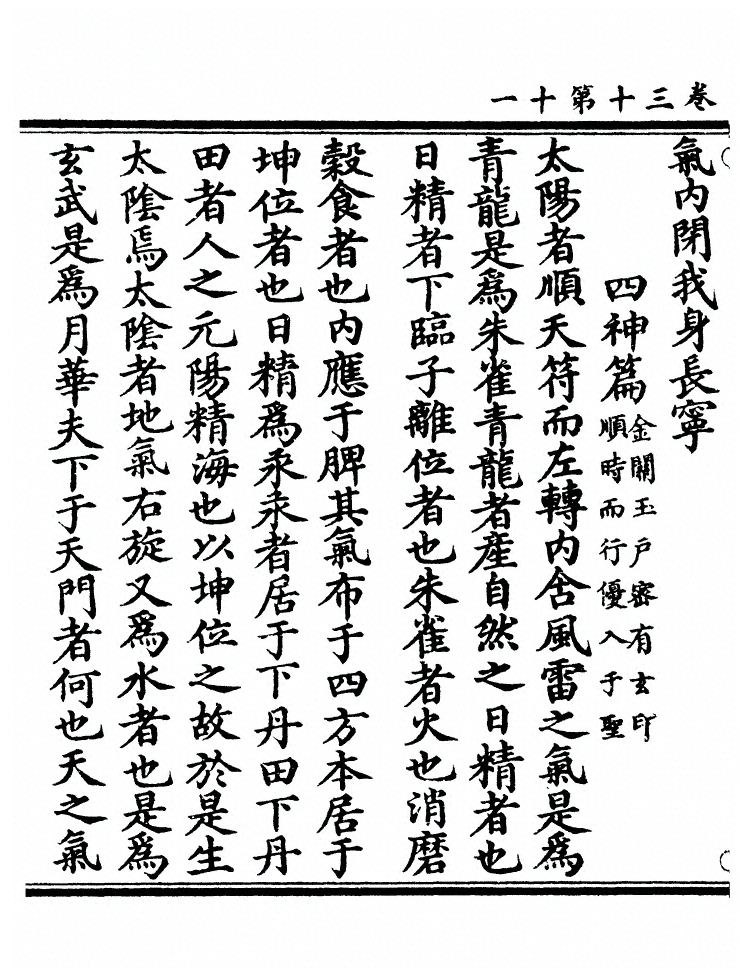 卷三十第十一
氣内閉我身長寧
四神篇金關玉戸審有玄印順時而行優入于聖
太陽者順天符而左轉内含風雷之氣是爲
青龍是爲朱雀青龍者產自然之日精者也
日精者下臨子離位者也朱雀者火也消磨
穀食者也内應于脾其氣布于四方本居于
坤位者也日精爲汞汞者居于下丹田下丹
田者人之元陽精海也以坤位之故於是生
太陰焉太陰者地氣右旋又爲水者也是爲
玄武是爲月華夫下于天門者何也天之氣